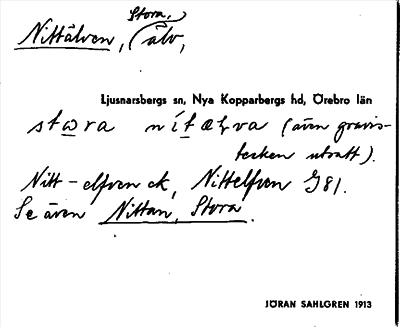 Stora,
Nittälven, (älv,
Ljusnarsbergs sn, Nya Kopparbergs hd, Örebro län
stωra nítælva (även gravis-
tecken utsatt).
Nitt-elfven ek, Nittelfven G81.
Se även Nittan, Stora.
JÖRAN SAHLGREN 1913